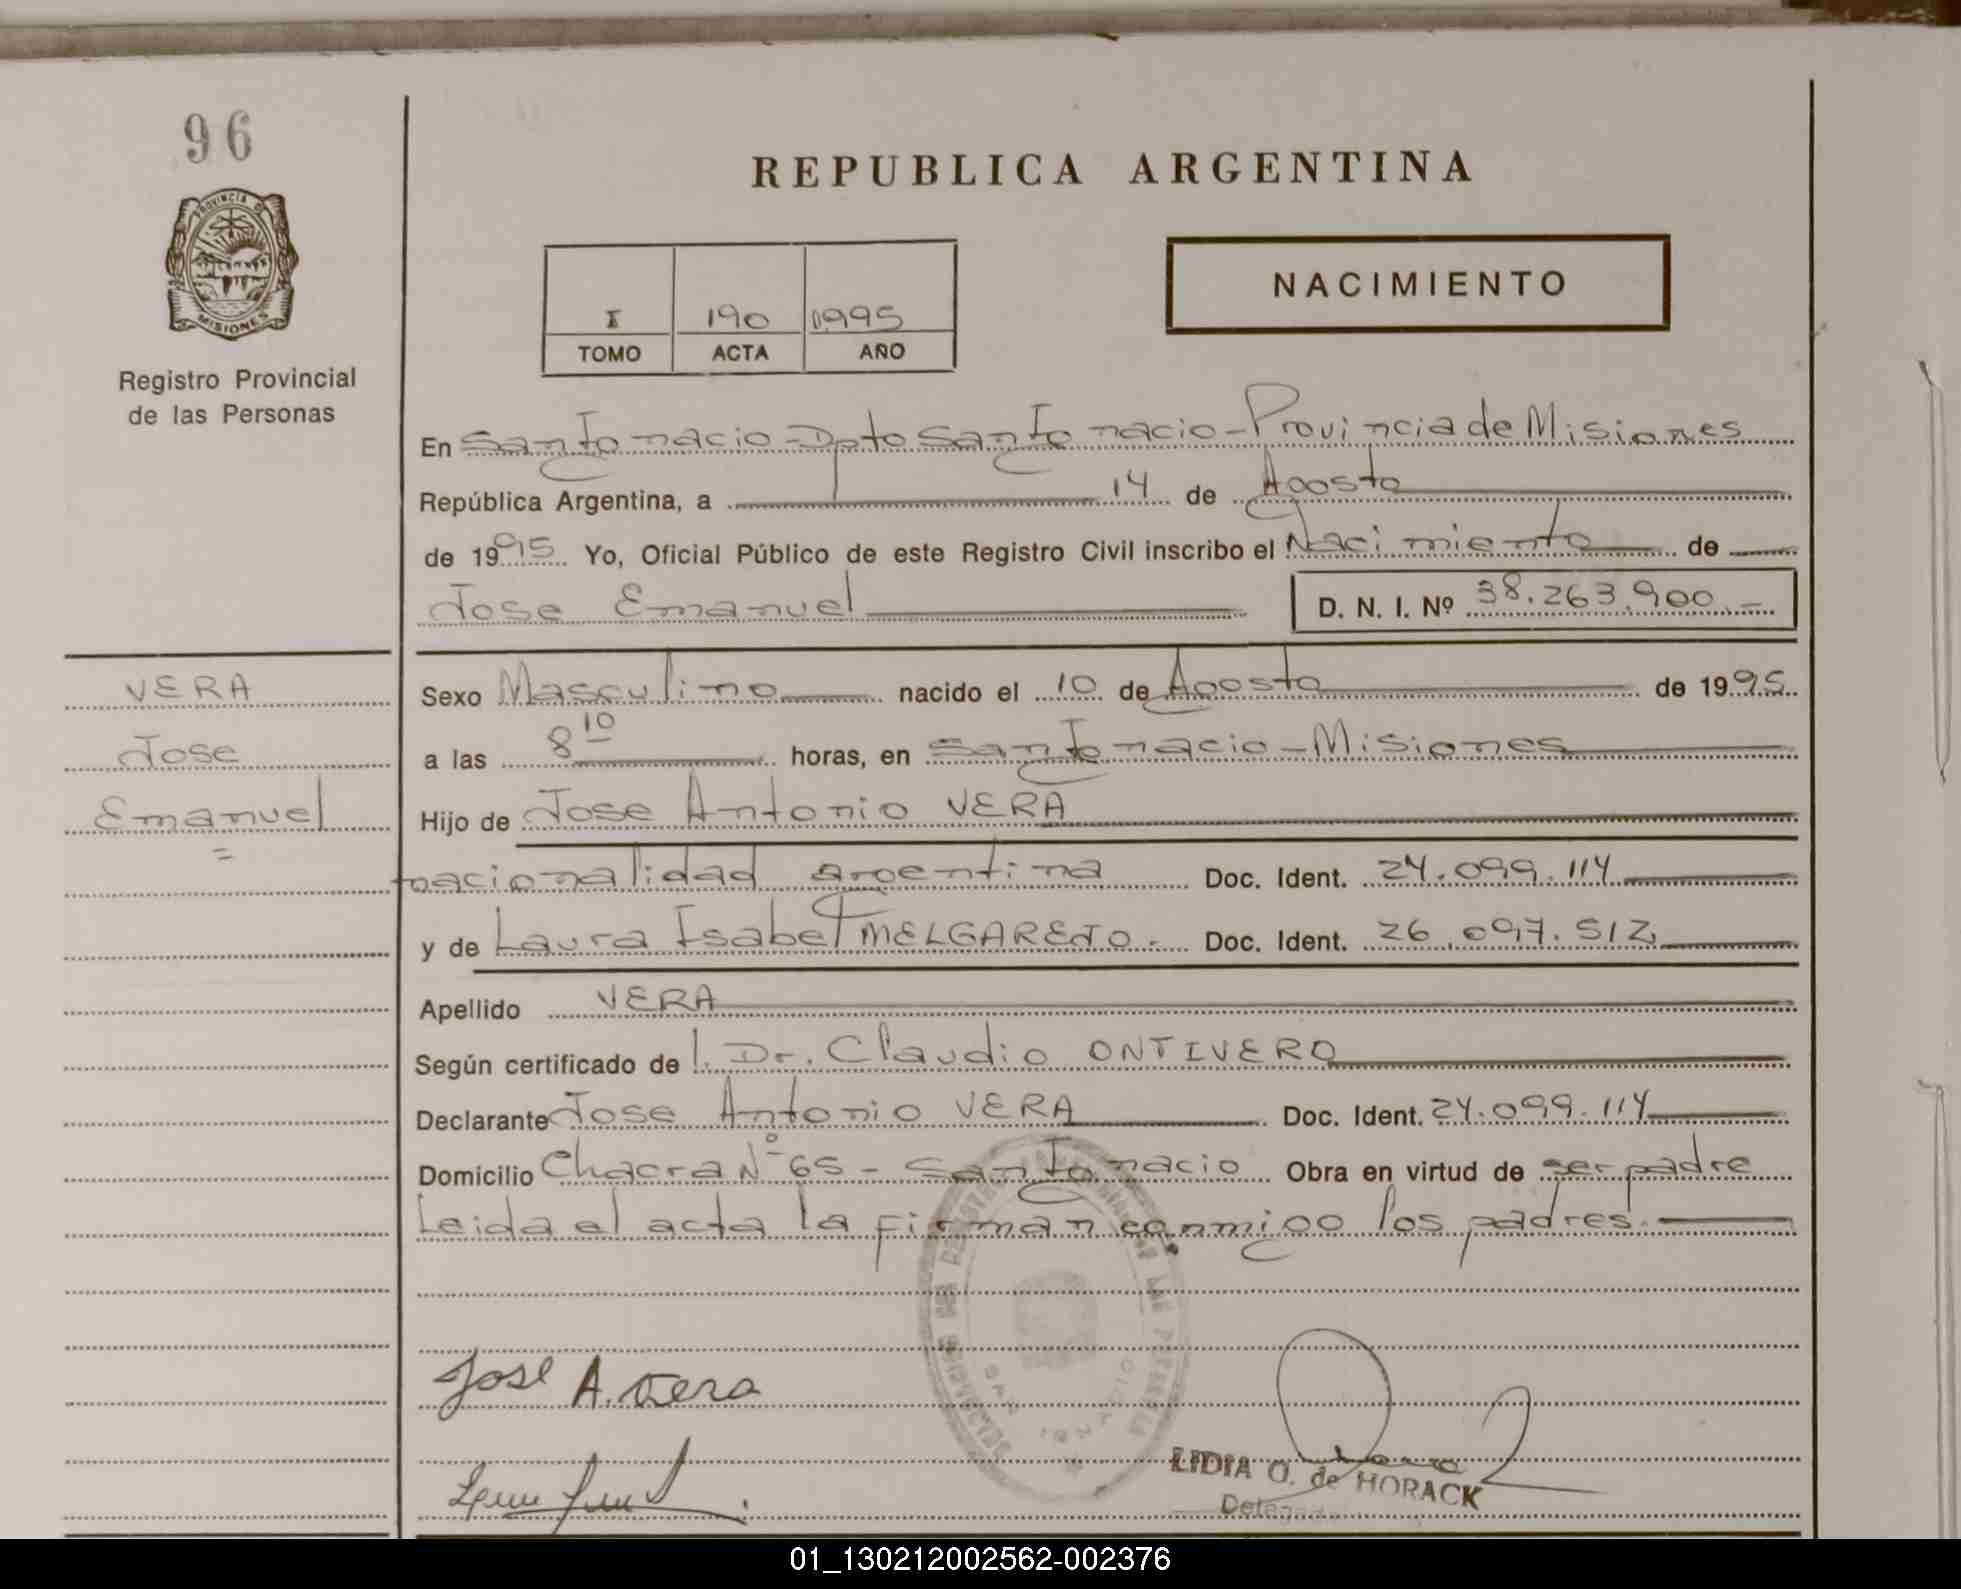 96
REPUBLICA ARGENTINA
PROVINCIA D
MISIONES
Registro Provincial
de las Personas
I 190 1995
TOMO ACTA AÑO
NACIMIENTO
En San Ignacio - Dpto San Ignacio - Provincia de Misiones
República Argentina, a 14 de Agosto
de 1995 Yo, Oficial Público de este Registro Civil inscribo el Nacimiento de
Jose Emanuel D. N. I. Nº 38.263.900.-
VERA
Jose
Emanuel
Sexo Masculino nacido el 10 de Agosto de 1995
a las 8 10 horas, en San Ignacio - Misiones
Hijo de Jose Antonio VERA
nacionalidad argentina Doc. Ident. 24.099.114
y de Laura Isabel MELGAREJO. Doc. Ident. 26.097.512
Apellido VERA
Según certificado de l. Dr. Claudio ONTIVERO
Declarante Jose Antonio VERA Doc. Ident. 24.099.114
Domicilio Chacra Nº 65 - San Ignacio Obra en virtud de ser padre
Leida el acta la firman conmigo los padres.
SAN IGNACIO
José A. Vera
LIDIA O. de HORACK
Delegada
01_130212002562-002376